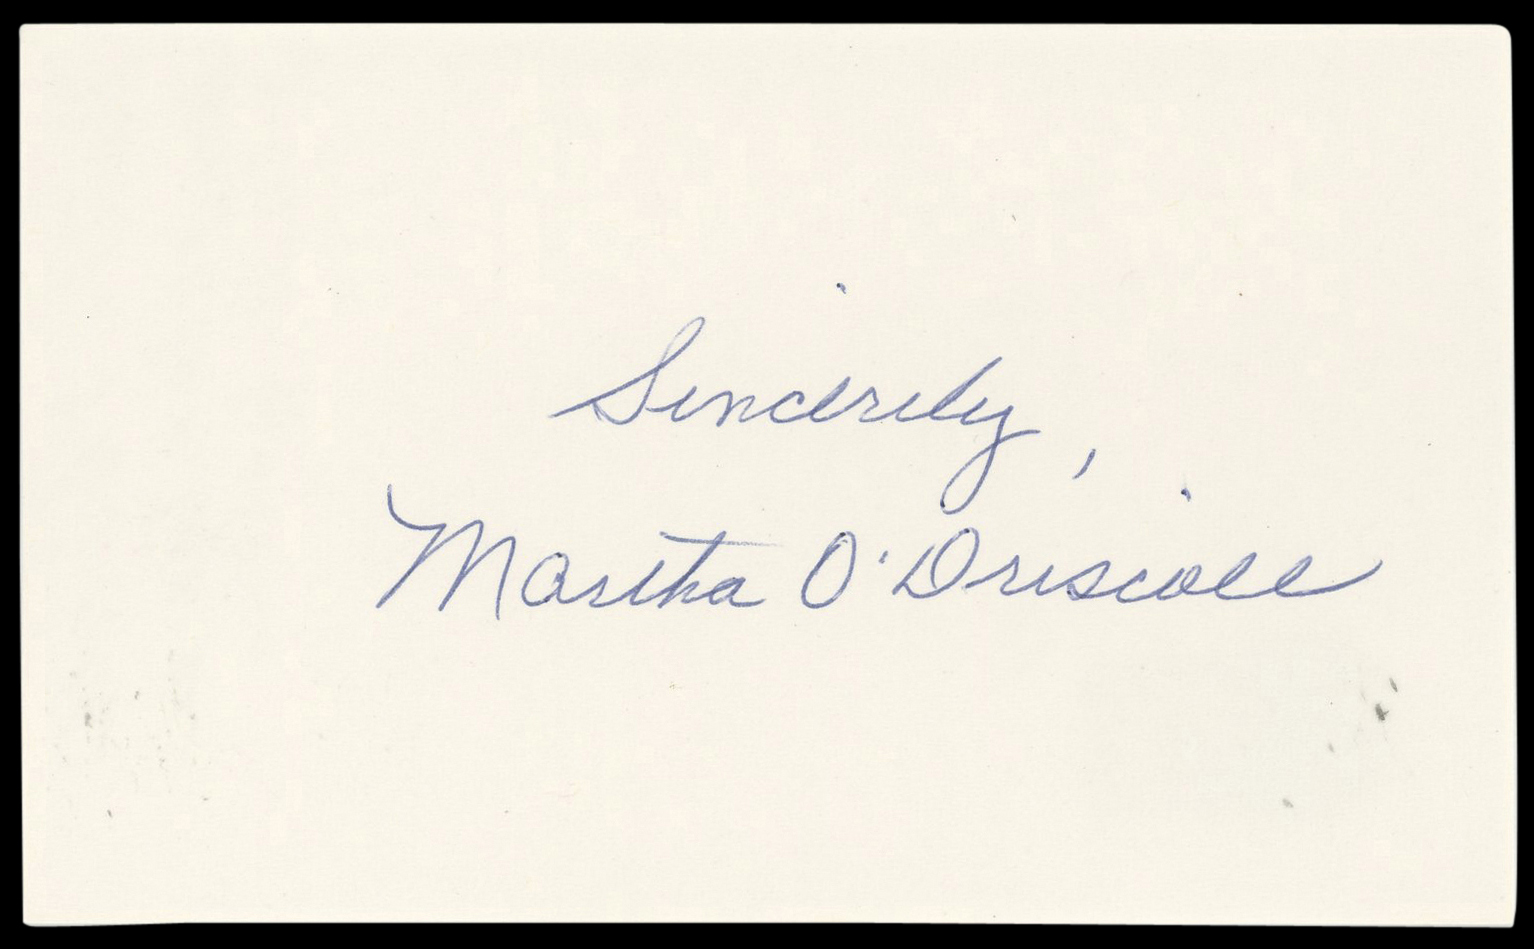 Sincerely,
Martha O'Driscoll